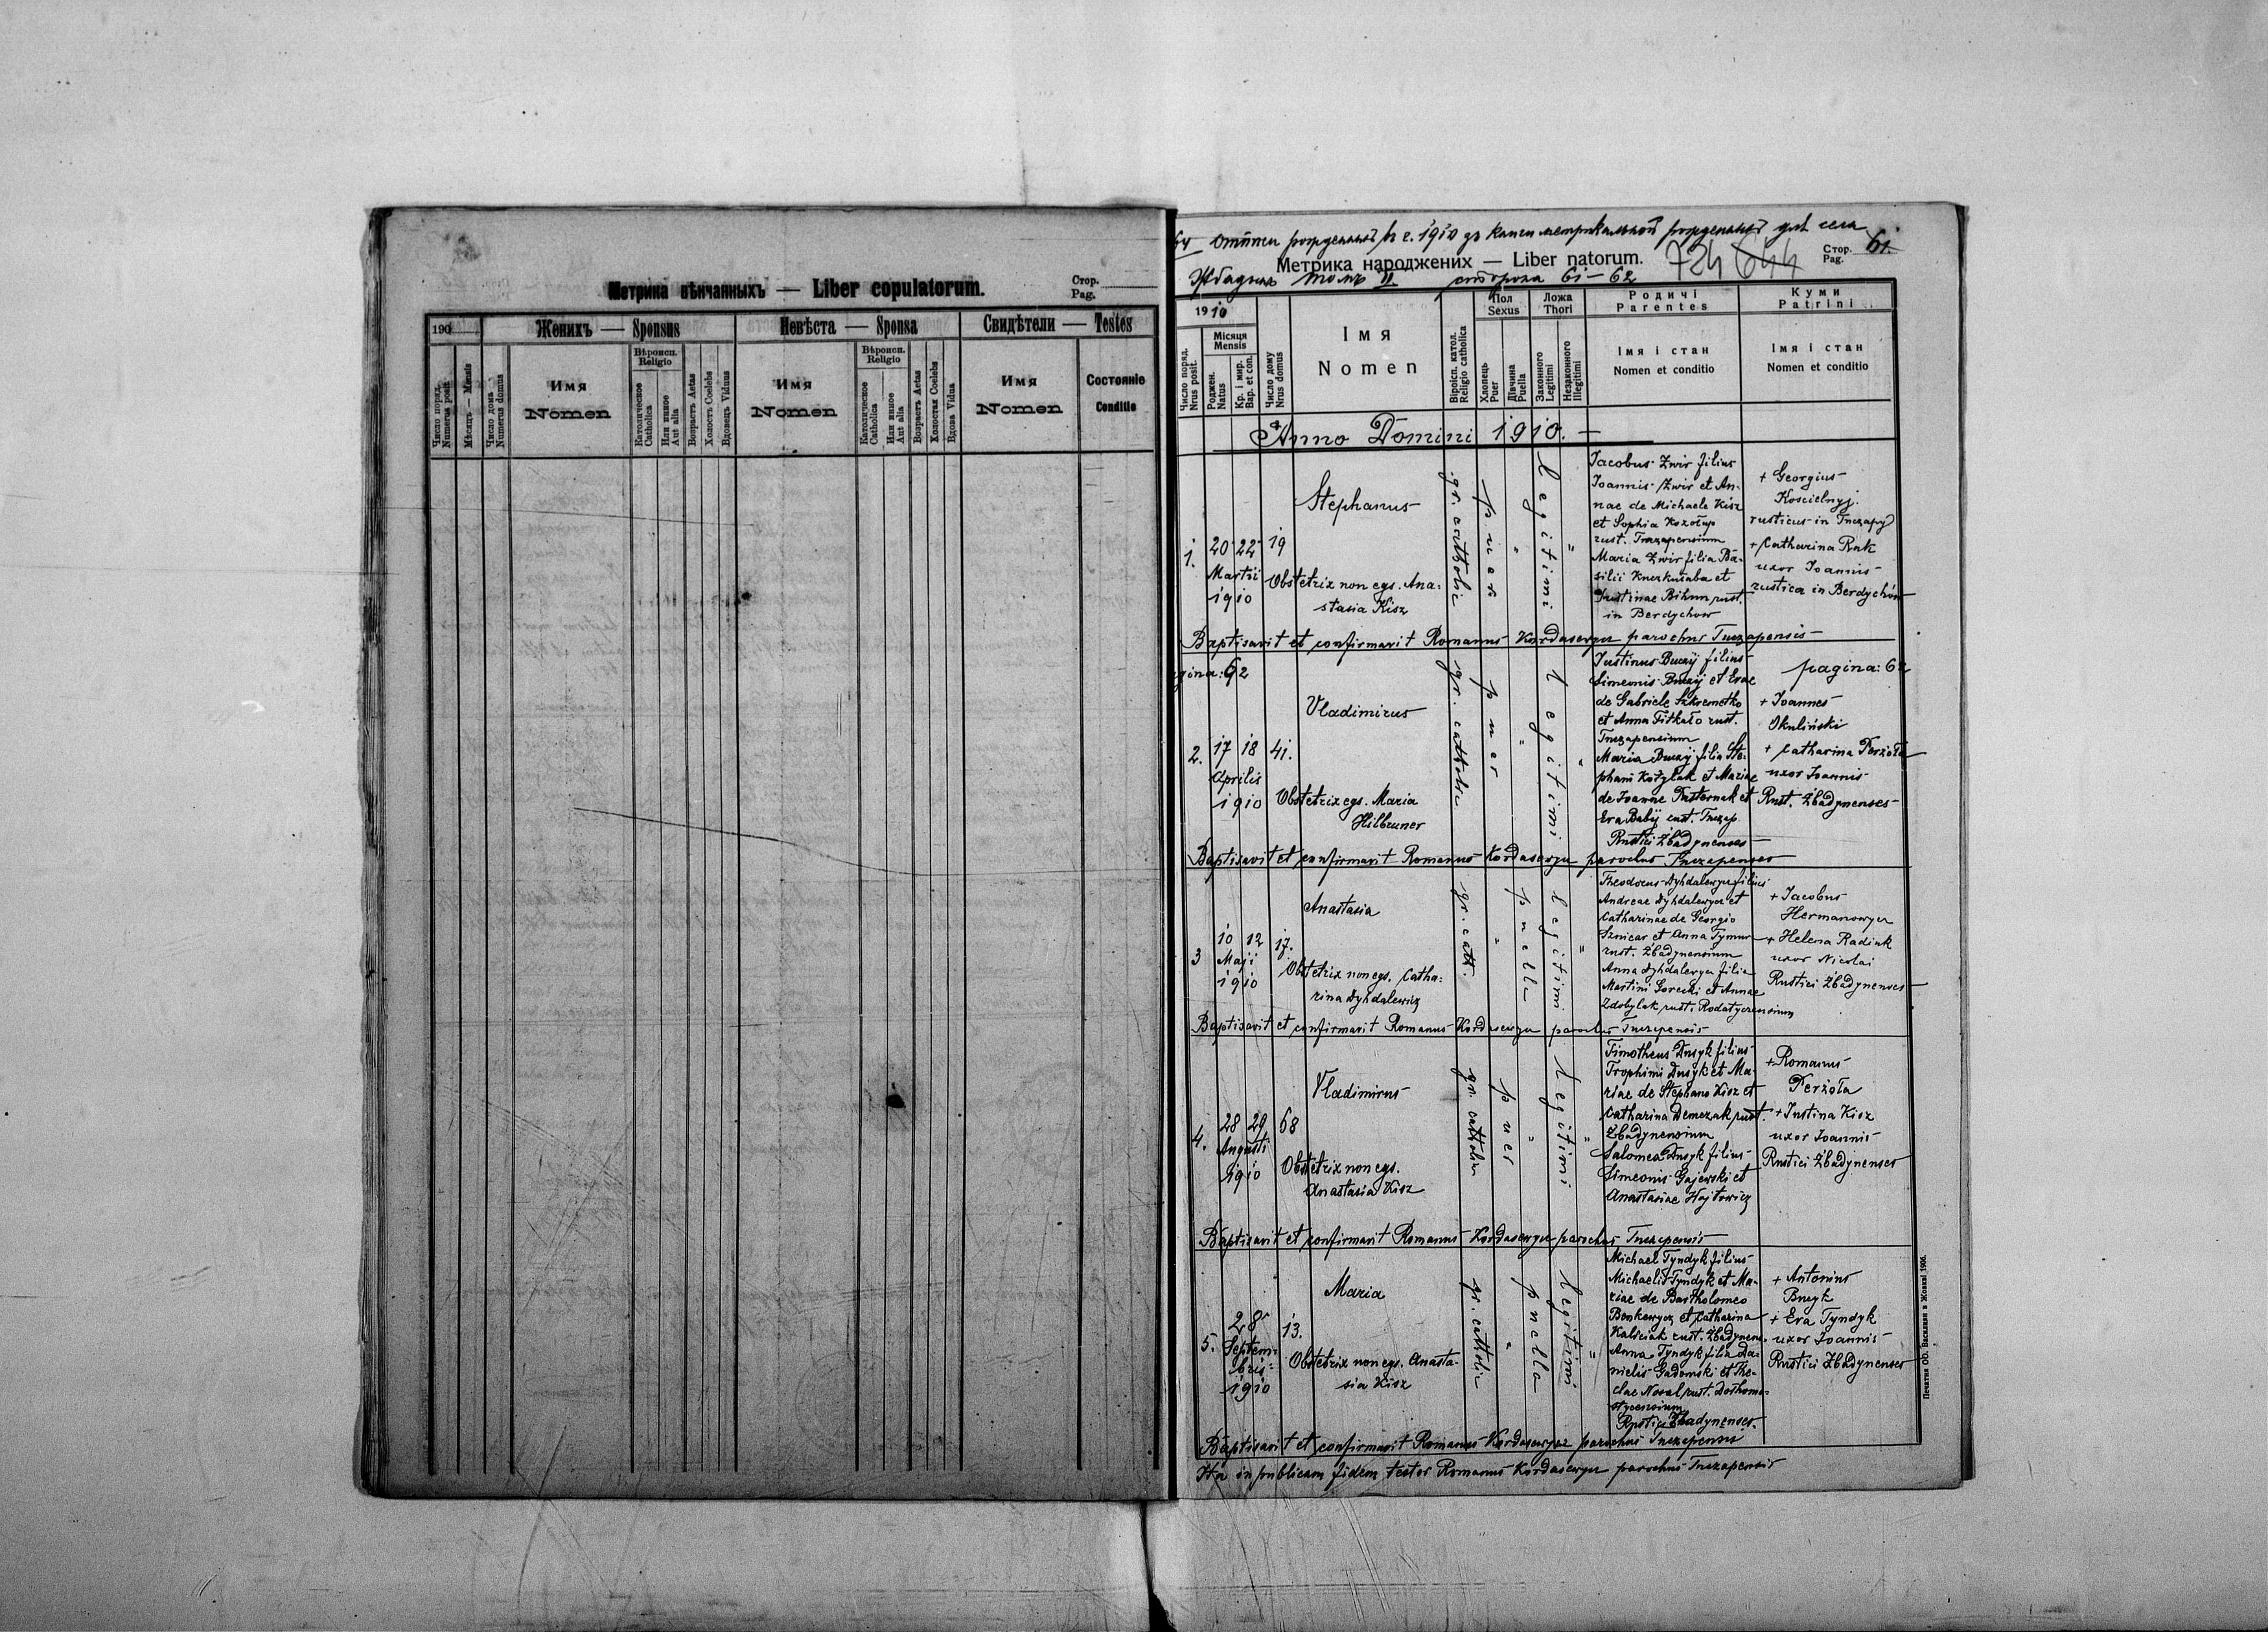 Метрина вѣнчанныхъ — Liber copulatorum.
Стор.
Pag.
190
Женихъ — Sponsus
Невѣста — Sponsa
Свидѣтели — Testes
Число поряд.
Numerus posit
Мѣсяцъ — Mensis
Число дома
Numerus domus
Имя
Nomen
Вѣроисп.
Religio
Католическое
Catholica
Или инное
Aut alia
Возрастъ Aetas
Холостъ Coelebs
Вдовецъ Viduus
Имя
Nomen
Вѣроисп.
Religio
Католическое
Catholica
Или инное
Aut alia
Возрастъ Aetas
Холостая Coelebs
Вдова Vidua
Имя
Nomen
Состояніе
Conditio
Метрика народжених — Liber natorum.
724 644
Стор.
Pag.
61.
томъ II. сторона 61–62
1910
Число поряд.
Nrus posit.
Місяця
Mensis
Роджен.
Natus
Кр. і мир.
Bap. et con.
Число дому
Nrus domus
Імя
Nomen
Віроісп. катол.
Religio catholica
Пол
Sexus
Хлопець
Puer
Дівчина
Puella
Ложа
Thori
Законного
Legitimi
Незаконного
Illegitimi
Родичі
Parentes
Імя і стан
Nomen et conditio
Куми
Patrini
Імя і стан
Nomen et conditio
Anno Domini 1910. —
1.
20 22 19
Martii
1910
Stephanus
Obstetrix non egs. Ana-
stasia Kisz
gr. catholic
puer
"
legitimi
"
Jacobus Zwir filius
Joannis Zwir et An-
nae de Michaele Kisz
et Sophia
rust.
Maria Zwir filia Ba-
silii et
Justinae rust.
in Berdychow
+ Georgius
Koscielnyj
rusticus in
+ Catharina Ruk
uxor Joannis
rustica in Berdychów
Baptisavit et confirmavit Romanus parochus Tuczapensis
pagina: 62
2.
17 18 41.
Aprilis
1910
Vladimirus
Obstetrix egs. Maria
Hilbruner
gr. catholic
puer
"
legitimi
"
Justinus filius
Simeonis et Evae
de Gabriele
et Anna rust.
Tuczapensium
Maria filia Ste-
phani Kotylak et Mariae
de Joanne Pasternak et
Eva Babij rust. Tuczap.
Rustici Zbadynenses
pagina: 62
+ Joannes
Okuliński
+ Catharina Perżoła
uxor Joannis
Rust. Zbadynenses
Baptisavit et confirmavit Romanus parochus Tuczapensis
3
10 12 17.
Maji
1910
Anastasia
Obstetrix non egs. Catha-
rina Dyhdalewicz
gr. cath.
"
puella
legitimi
"
Theodorus Dyhdalewycz filius
Andreae Dyhdalewycz et
Catharinae de Georgio
Sznicar et Anna Tymur
rust. Zbadynensium
Anna Dyhdalewycz filia
Martini Gorecki et Annae
Zdobylak rust. Rodatyczensium
+ Jacobus
Hermanowycz
+ Helena Radiuk
uxor Nicolai
Rustici Zbadynenses
Baptisavit et confirmavit Romanus parochus Tuczapensis
4.
28 29 68
Augusti
1910
Vladimirus
Obstetrix non egs.
Anastasia Kisz
gr. catholic
puer
"
legitimi
"
Timotheus Dusyk filius
Trophimi Dusyk et Ma-
riae de Stephano Kisz et
Catharina Demczak rust.
Zbadynensium
Salomea Dusyk filius
Simeonis Gajewski et
Anastasiae Hajtowicz
+ Romanus
Perżoła
+ Justina Kisz
uxor Joannis
Rustici Zbadynenses
Baptisavit et confirmavit Romanus parochus Tuczapensis
5.
28 13.
Septem-
bris
1910
Maria
Obstetrix non egs. Anasta-
sia Kisz
gr. catholic
"
puella
legitimi
"
Michael Tyndyk filius
Michaelis Tyndyk et Ma-
riae de Bartholomeo
et Catharina
rust. Zbadynens.
Anna Tyndyk filia Da-
nielis Gadomski et The-
clae Nowal rust.

Rustici Zbadynenses
+ Antonius

+ Eva Tyndyk
uxor Joannis
Rustici Zbadynenses
Baptisavit et confirmavit Romanus parochus Tuczapensis
Ita in publicam fidem testor Romanus parochus Tuczapensis
Печатня ОО. Василиян в Жовкві 1906.